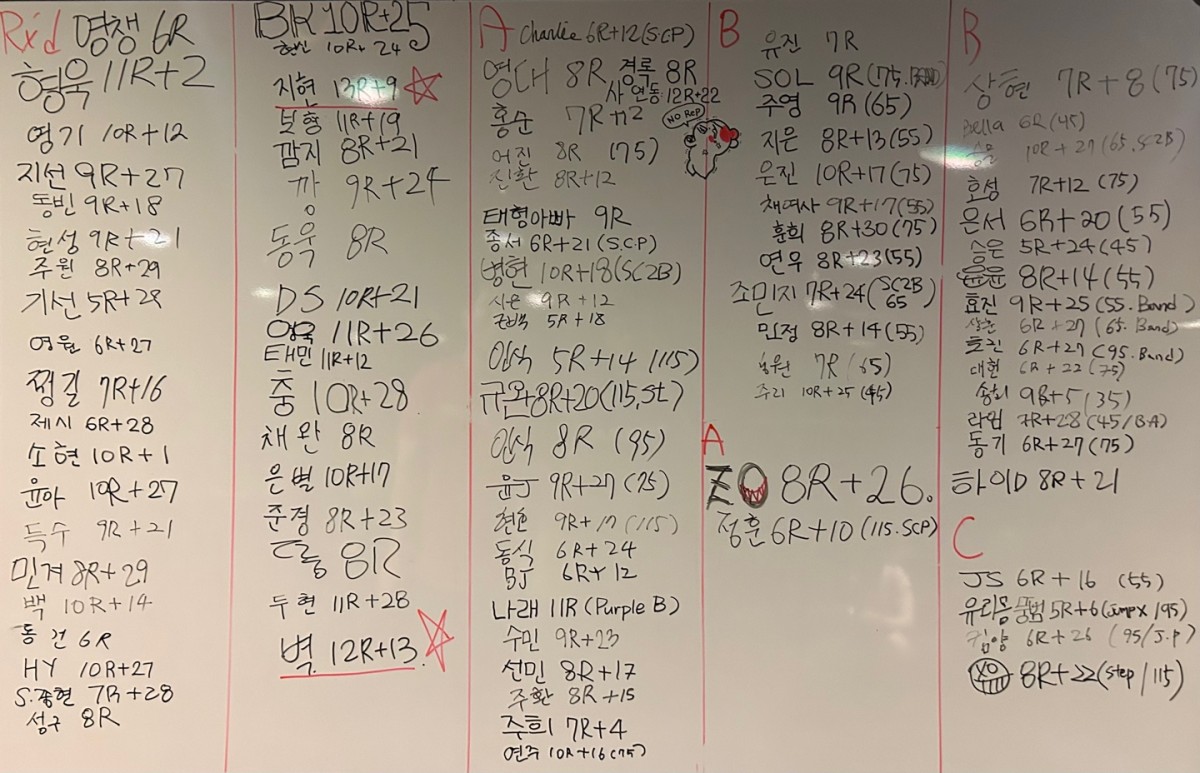 Rxd 명쟁 6R
형욱 11R+2
영기 10R+12
지선 9R+27
동빈 9R+18
현성 9R+21
주원 8R+29
기선 5R+28
영원 6R+27
쩡길 7R+16
제시 6R+28
소현 10R+1
윤아 10R+27
득수 9R+21
민겨 8R+29
백 10R+14
동건 6R
HY 10R+27
S.종현 7R+28
성구 8R
BK 10R+25
현신 10R+24
지현 13R+9
보형 11R+19
깜지 8R+21
깡 9R+24
동욱 8R
DS 10R+21
영욱 11R+26
태민 11R+12
중 10R+28
채완 8R
은별 10R+17
준경 8R+23
8R
두현 11R+28
벽 12R+13
A Charlie 6R+12(SCP)
영대 8R 경록 8R
사연동 12R+22
홍순 7R+12
NO REP
어진 8R (75)
진환 8R+12
태형아빠 9R
종서 6R+21(S.C.P)
병현 10R+18(SC2B)
시은 9R+12
5R+18
인식 5R+14 (115)
규온 8R+20(115,St)
인식 8R (95)
윤J 9R+27(75)
현호 9R+17(115)
동식 6R+24
BJ 6R+12
나래 11R(Purple B)
수민 9R+23
선민 8R+17
주환 8R+15
주희 7R+4
연주 10R+16(75)
B
유진 7R
SOL 9R(75.Band)
주영 9R(65)
지은 8R+13(55)
은진 10R+17(75)
채여사 9R+17(55)
훈희 8R+30(75)
연우 8R+23(55)
조민지 7R+24(SC2B 65)
민정 8R+14(55)
7R (65)
주리 10R+25(45)
A
ZO 8R+26.
정훈 6R+10(115.SCP)
B
상현 7R+8(75)
Bella 6R(45)
10R+27(65.SC2B)
호성 7R+12(75)
은서 6R+20(55)
승은 5R+24(45)
윤윤 8R+14(55)
효진 9R+25(55.Band)
6R+27(65.Band)
효진 6R+27(95.Band)
대현 6R+22(75)
송희 9R+5(35)
라임 7R+28(45/BA)
동기 6R+27(75)
하이D 8R+21
C
JS 6R+16 (55)
유리몸뚱범 5R+6(Jump x 195)
킴양 6R+26 (95/J.P)
XO 8R+22(step/115)